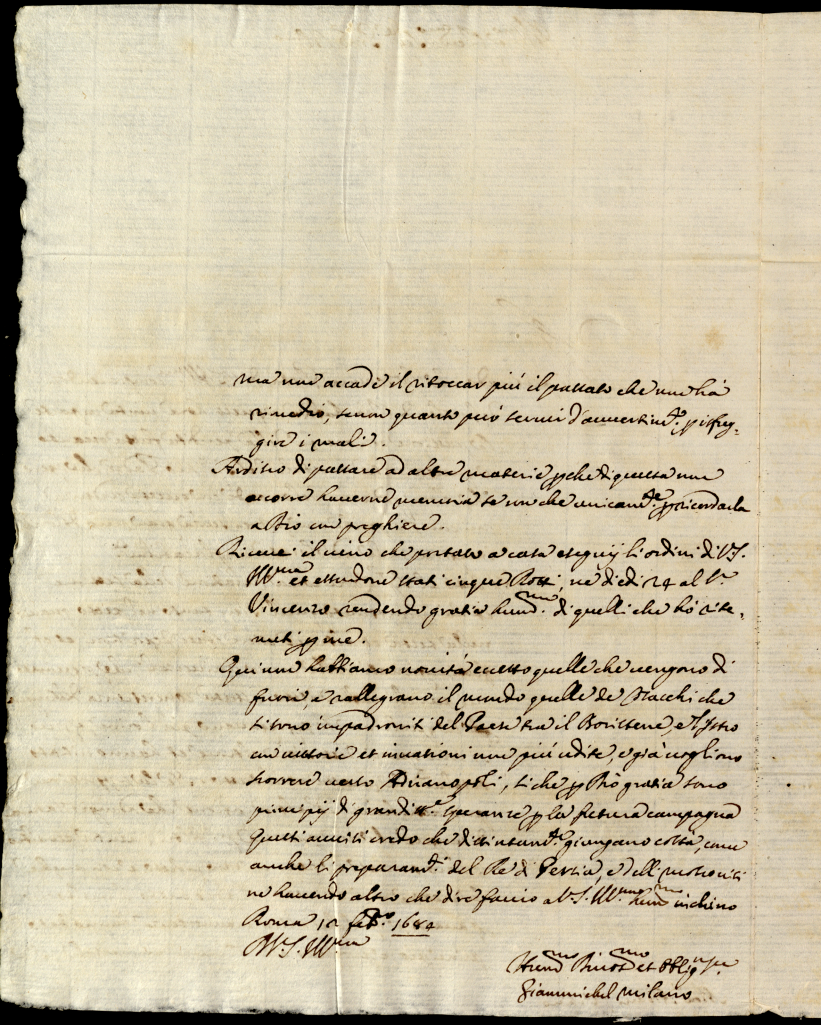 ma non accade il ritoccar più il passato che non hà
rimedio, se non quanto può servir d'avvertim.to p isfug-
gire i mali.
Ardisco di passare ad altre materie pche di questa non
occorre haverne memoria se non che unicam.te p ricordarla
a Dio con preghiere.
Ricevei il vino che portato a casa eseguij li ordini di V.S.
Ill.ma et essendone stati cinque fiaschi, ne diedi 24 al S.r
Vincenzo rendendo gratie hum.me di quelli che hò rite-
nuti p me.
Qui non habbiamo novità eccetto quelle che vengono di
fuori, e rallegrano il mondo quelle de Cosacchi che
si sono impadroniti del Paese tra il Boristene, e l'Istro
con vittorie et invasioni non più udite, e già vogliono
scorrere verso Adrianopoli, si che p Dio gratia sono
principij di grandiss.e speranze p la futura campagna
Questi avvisi credo che distintam.te giungano costà, come
anche li preparam.ti del Re di Persia, e delli Moscoviti
ne havendo altro che dire faccio a V.S. Ill.ma hum.mo inchino
Roma 12 feb.o 1684
D V.S. Ill.ma
Hum.mo Divot.mo et Obblig.
Giammichel Milano